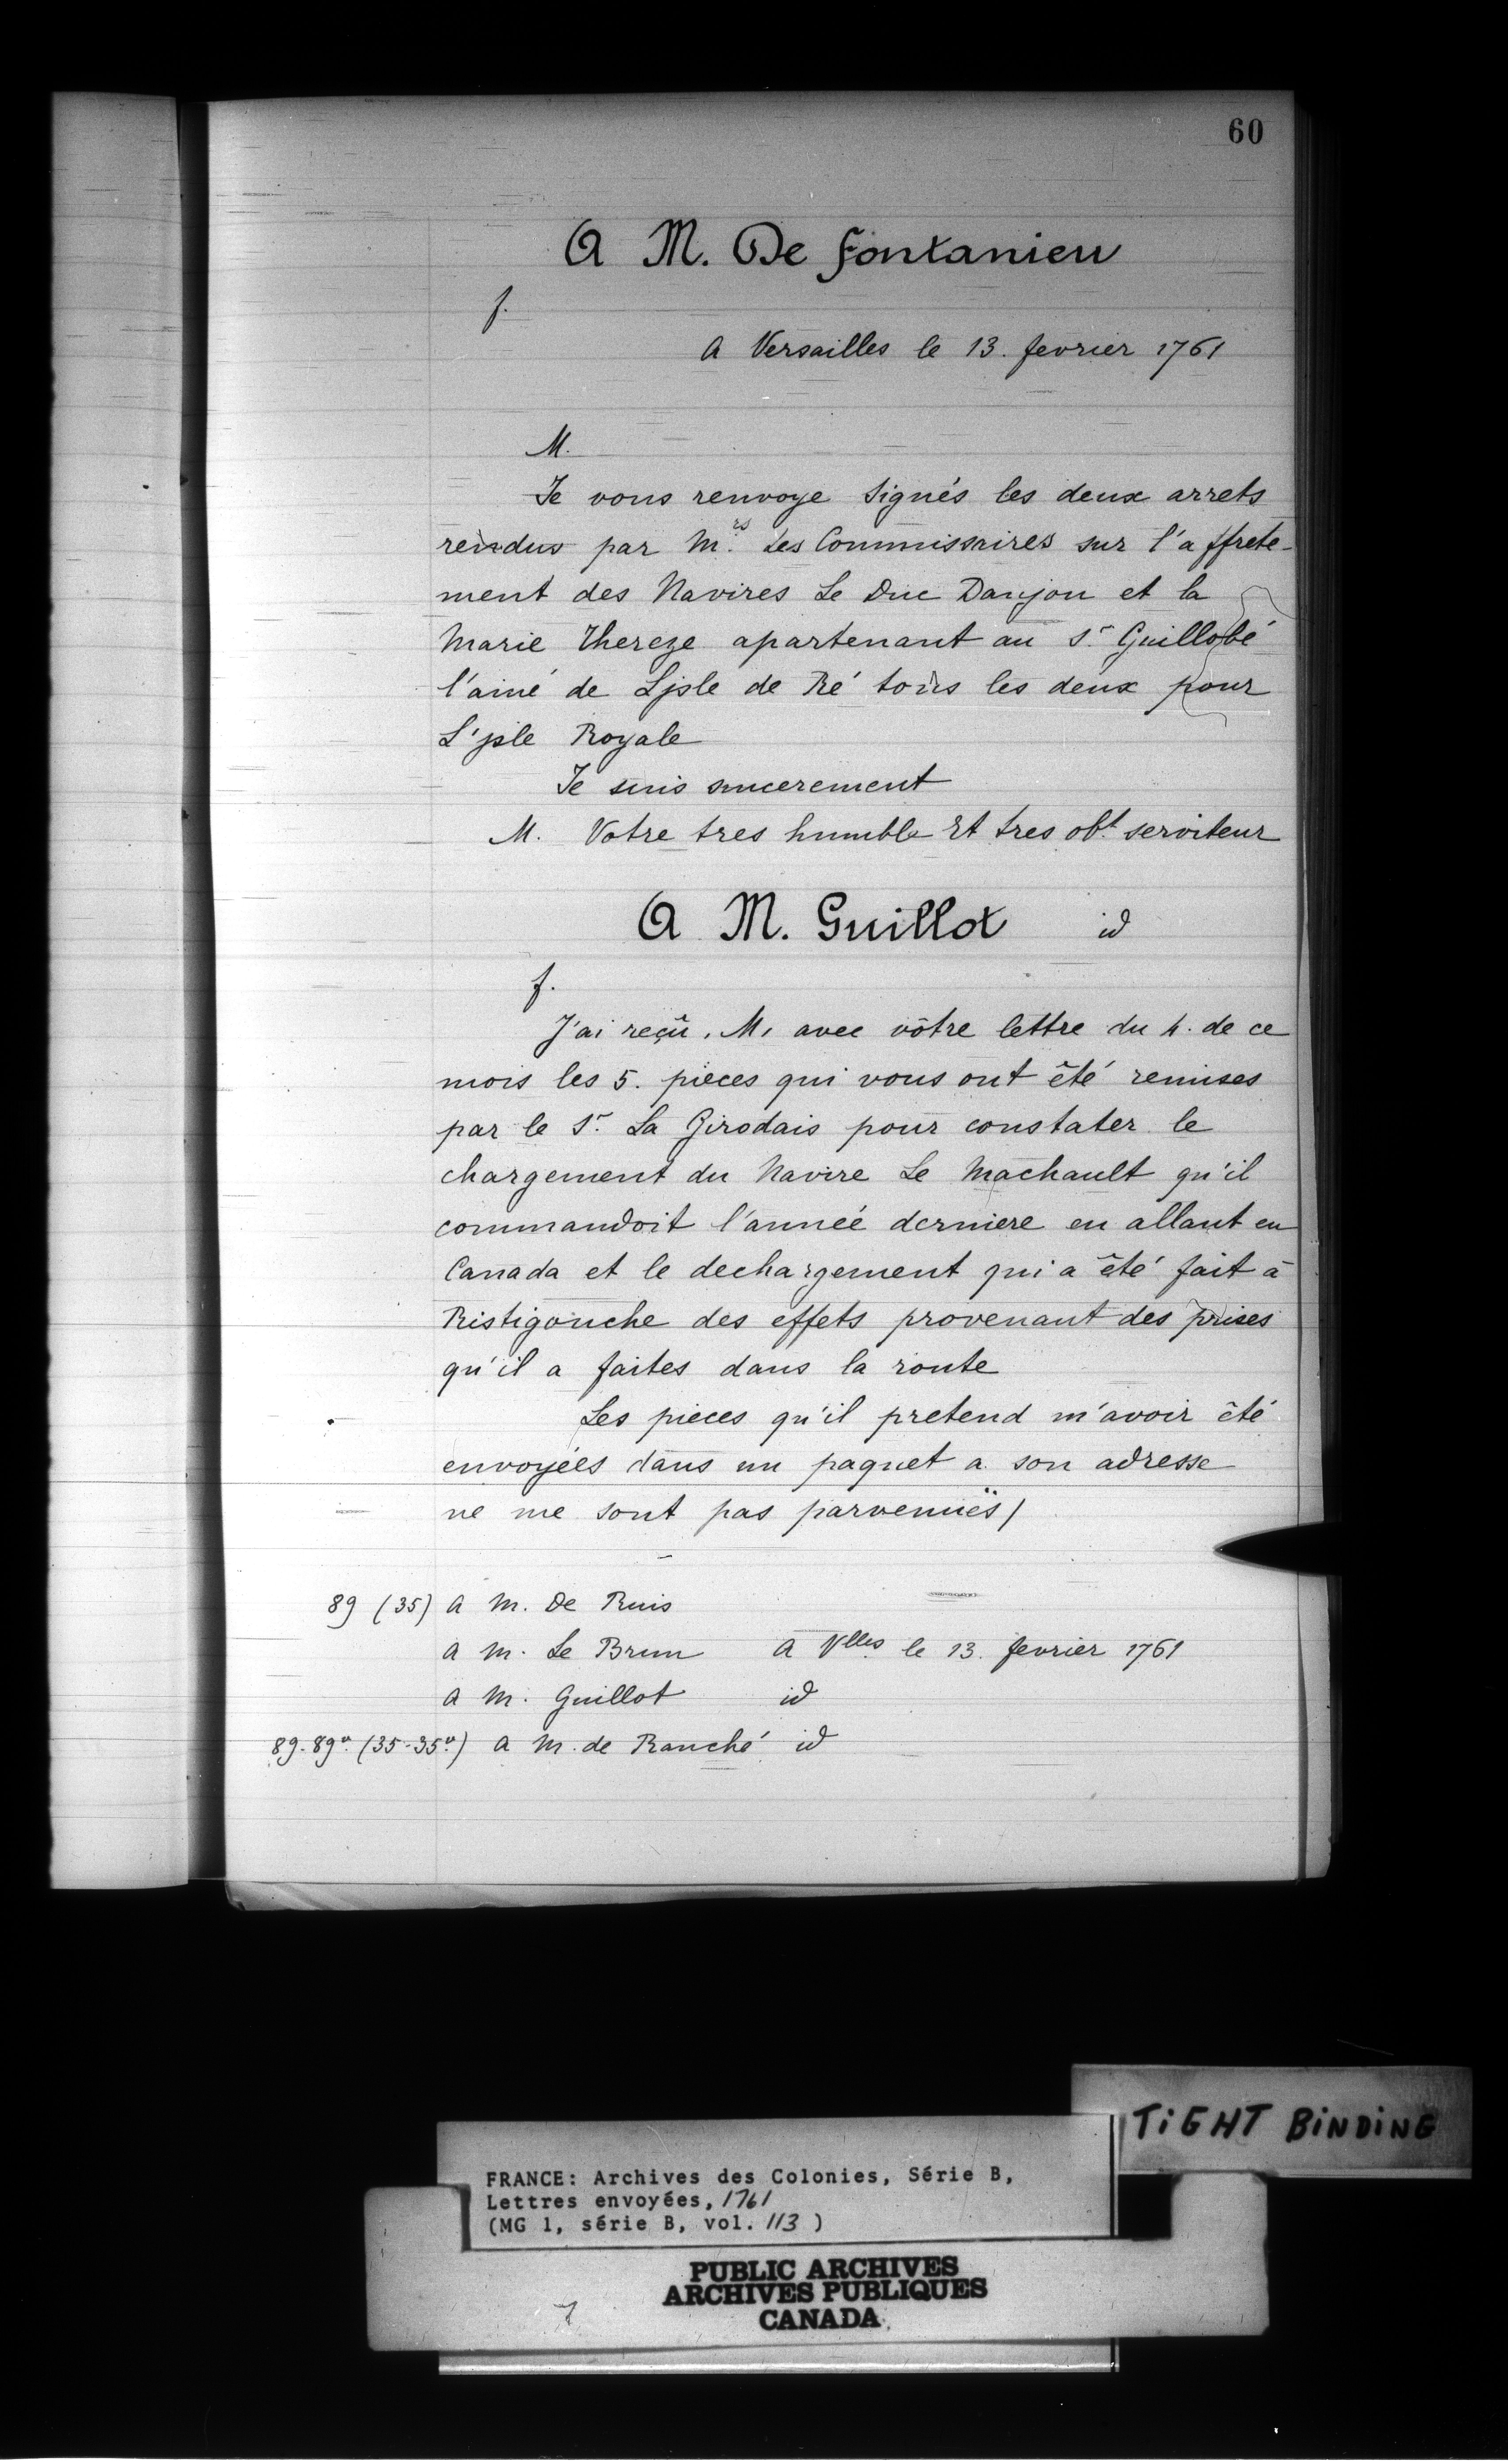 60
A M. De Fontanieu
f.
A Versailles le 13. fevrier 1761
M.
Je vous renvoye signés les deux arrets
rendus par M.rs Les Commissaires sur l'affrete-
ment des Navires Le Duc Danjou et la
Marie Thereze apartenant au Sr. Guillobé
l'ainé de Lisle de Ré tous les deux pour
L'isle Royale
Je suis sincerement
M. Votre tres humble Et tres obt. serviteur
A M. Guillot id
f.
J'ai reçû, M, avec vôtre lettre du 4. de ce
mois les 5. pieces qui vous ont êté remises
par le Sr. La Girodais pour constater le
chargement du Navire Le Machault qu'il
commandoit l'anneé derniere en allant en
Canada et le dechargement qui a êté fait à
Ristigouche des effets provenant des prises
qu'il a faites dans la route
Les pieces qu'il pretend m'avoir êté
envoyées dans un paquet a son adresse
ne me sont pas parvenuës/
89 (35) A M. De Ruis
A M. Le Brun A Vlles le 13. fevrier 1761
A M. Guillot id
89-89v. (35-35v.) A M. de Ranché id
TIGHT BINDING
FRANCE: Archives des Colonies, Série B,
Lettres envoyées, 1761
(MG 1, série B, vol. 113 )
PUBLIC ARCHIVES
ARCHIVES PUBLIQUES
CANADA